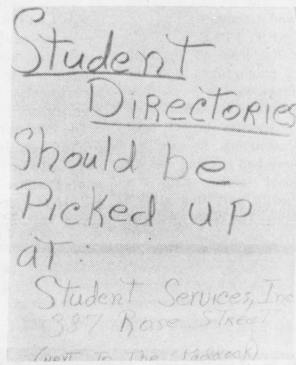 Student
Directories
Should be
Picked up
at:
Student Services, Inc
387 Rose Street
(next to The Paddock)